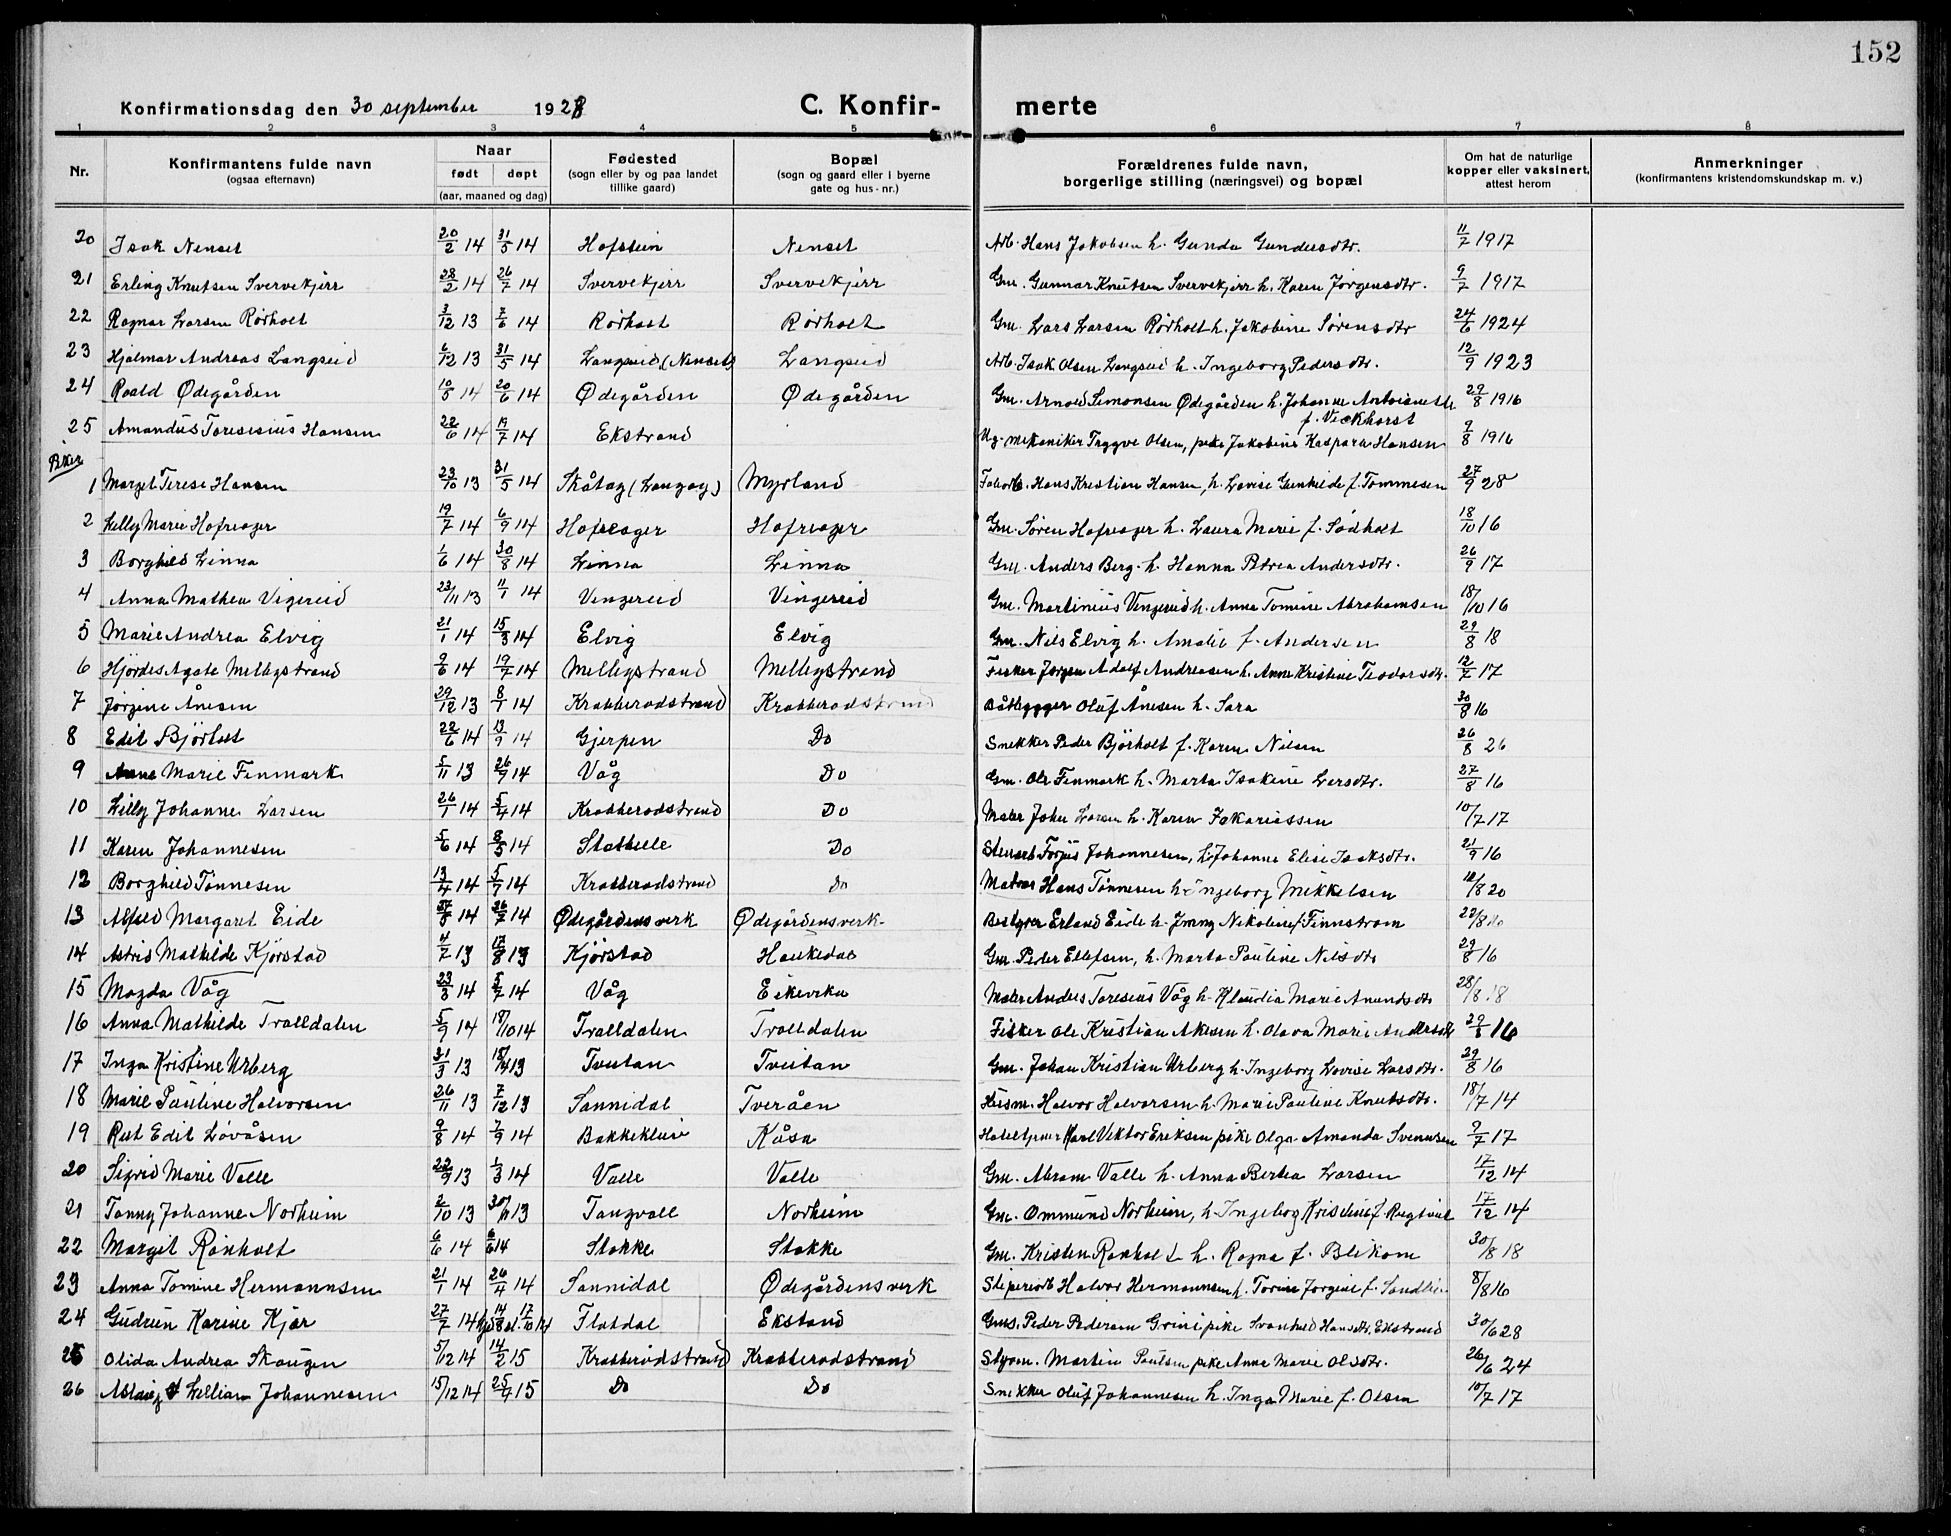 152
Konfirmationsdag den 30 september 1928
C. Konfir- merte
1 2 3 4 5 6 7 8
Nr. Konfirmantens fulde navn (ogsaa efternavn) Naar født døpt (aar, maaned og dag) Fødested (sogn eller by og paa landet tillike gaard) Bopæl (sogn og gaard eller i byerne gate og hus-nr.) Forældrenes fulde navn, borgerlige stilling (næringsvei) og bopæl Om hat de naturlige kopper eller vaksinert, attest herom Anmerkninger (konfirmantens kristendomskundskap m. v.)
20 Isak Nenset 20/2 14 31/5 14 Hofstein Nenset Arb. Hans Jakobsen h. Gunda Gundersdtr. 11/7 1917
21 Erling Knutsen Svervekjærr 28/2 14 26/7 14 Svervekjerr Svervekjerr Gm. Gunnar Knutsen Svervekjerr h. Karen Jørgensdtr. 9/7 1917
22 Ragnar Larsen Rørholt 3/12 13 7/6 14 Rørholt Rørholt Gm. Lars Larsen Rørholt h. Jakobine Sørensdtr 24/6 1924
23 Hjalmar Andreas Langseid 6/12 13 31/5 14 Langseid (Nenset) Langseid Arb. Isak Olsen Langseid h. Ingeborg Pedersdtr. 12/9 1923
24 Roald Ødegården 10/5 14 20/6 14 Ødegården Ødegården Gm. Arnold Simonsen Ødegården h. Johanne Antoinette f. Veckhorst 29/8 1916
25 Amandus Toresius Hansen 22/6 14 19/7 14 Ekstrand Ug. mekaniker Trygve Olsen, pike Jakobine Kaspara Hansen 9/8 1916
Piker
1 Margit Terese Hansen 23/10 13 31/5 14 Skåtøy (Langøy) Myrland Fabarb. Hans Kristian Hansen, h. Lovise Gunhilde f. Tommesen 27/9 28
2 Lilly Marie Hafreager 19/7 14 6/9 14 Hafreager Hafreager Gm. Søren Hafreager h. Laura Marie f. Sødholt 18/10 16
3 Borghild Linna 1/6 14 30/8 14 Linna Linna Gm. Anders Berg. h. Hanna Petrea Andersdtr. 26/9 17
4 Anna Mathea Vigereid 23/11 13 11/1 14 Vingereid Vingereid Gm. Martinius Vingereid h. Anne Tomine Abrahamsen 18/10 16
5 Marie Andrea Elvig 21/1 14 15/3 14 Elvig Elvig Gm. Nils Elvig h. Amalie f. Andersen 29/8 18
6 Hjördes Agate Melbystrand 9/6 14 19/7 14 Melbystrand Melbystrand Fisker Jørgen Adolf Andreasen h. Anne Kristine Teodorsdtr. 12/7 17
7 Jørgine Ånesen 29/12 13 8/1 14 Krabberødstrand Krabberødstrand Båtbygger Oluf Ånesen h. Sara 30/8 16
8 Edit Bjørholt 22/6 14 13/9 14 Gjerpen Do Snekker Peder Bjørholt f. Karen Nilsen 26/8 26
9 Anne Marie Finmark 5/11 13 26/9 14 Våg Do Gm. Ole Finmark h. Marta Isakine Larsdtr. 27/8 16
10 Lilly Johanne Larsen 26/1 14 5/4 14 Krabberødstrand Do Maler Johu Larsen h. Karen Zakariassen 10/7 17
11 Karen Johannesen 5/6 14 8/5 14 Stathelle Do Stuart Torjus Johannesen, h. Johanne Elise Isaksdtr. 21/9 16
12 Borghild Tønnesen 13/4 14 5/7 14 Krabberødstrand do Matros Hans Tønnesen h. Ingeborg Mikkelsen 12/8 20
13 Alfild Margaret Eide 14 26/7 14 Ødegårdensverk Ødegårdensverk Bestyrer Erland Eide h. Jenny Nikoline f. Finnstrøm 22/8 16
14 Astrid Mathilde Kjørstad 4/7 13 17/8 13 Kjørstad Haukedal Gm. Peder Ellefsen, h. Marta Pauline Nilsdtr 29/8 16
15 Magda Våg 23/3 14 5/7 14 Våg Eikevika Maler Anders Toresius Våg h. Klaudia Marie Amundsdtr 28/8 18
16 Anna Mathilde Tralldalen 5/9 14 18/10 14 Tralldalen Tralldalen Fisker Ole Kristian Akesen h. Olava Marie Andersdtr 29/8 16
17 Inga Kristine Urberg 31/3 13 13 Tveitan Tveitan Gm. Johan Kristian Urberg h. Ingeborg Lovise Larsdtr. 29/8 16
18 Marie Pauline Halvorsen 26/11 13 7/12 13 Sannidal Tveråen Husm. Halvor Halvorsen h. Marie Pauline Knutsdtr. 18/7 14
19 Rut Edit Løvåsen 9/8 14 7/9 14 Bakkekleiv Kåsa Hoteltjener Karl Viktor Eriksen pike Olga Amanda Svennsen 9/7 17
20 Sigrid Marie Valle 22/9 13 1/3 14 Valle Valle Gm. Abram Valle h. Anna Bertea Larsen 17/12 14
21 Tanny Johanne Norheim 2/10 13 30/11 13 Tangvall Norheim Gm. Ommund Norheim, h. Ingeborg Kristine f. Rugtveit 17/12 14
22 Margit Rønholt 6/6 14 14 Stokke Stokke Gm. Kristen Rønholt h. Ragna f. Blekom 30/8 18
23 Anna Tomine Hermannsen 21/1 14 26/4 14 Sannidal Ødegårdensverk Sliperiarb. Halvor Hermannsen h. Torine Jørgine f. Sandbin 8/8 16
24 Gudrun Karine Kjær 27/7 14 14/8 17/10 14 Flatdal Ekstand Gms. Peder Pedersen Grini pike Svanhild Hansdtr. Ekstrand 30/6 28
25 Olida Andrea Skaugen 5/12 14 14/2 15 Krabberødstrand Krabberødstrand Styrm. Martin Paulsen pike Anne Marie Olsdtr. 26/6 24
26 Lillian Johannesen 15/12 14 25/4 15 Do Do Snekker Oluf Johannesen h. Inga Marie f. Olsen 10/7 17